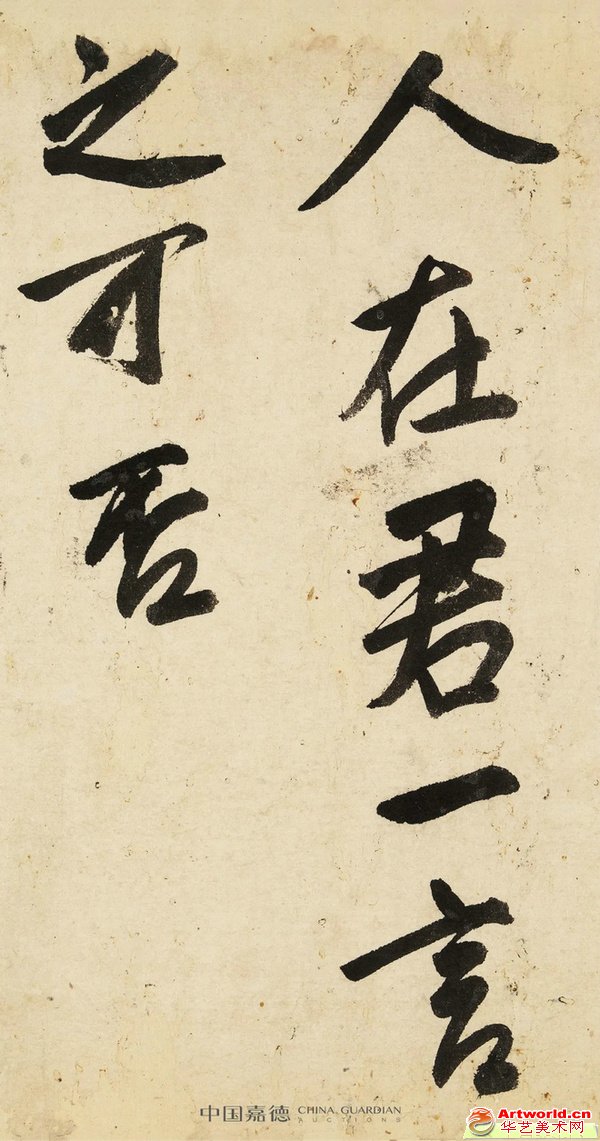 人在君一言
之可否
中国嘉德 CHINA GUARDIAN
AUCTIONS
Artworld.cn
华艺美术网